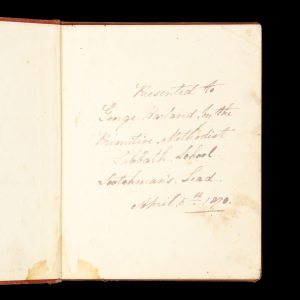 Presented to
George Harland, by the
Primitive Methodist
Sabbath School
Scotchman's Lead
April 5th 1870.